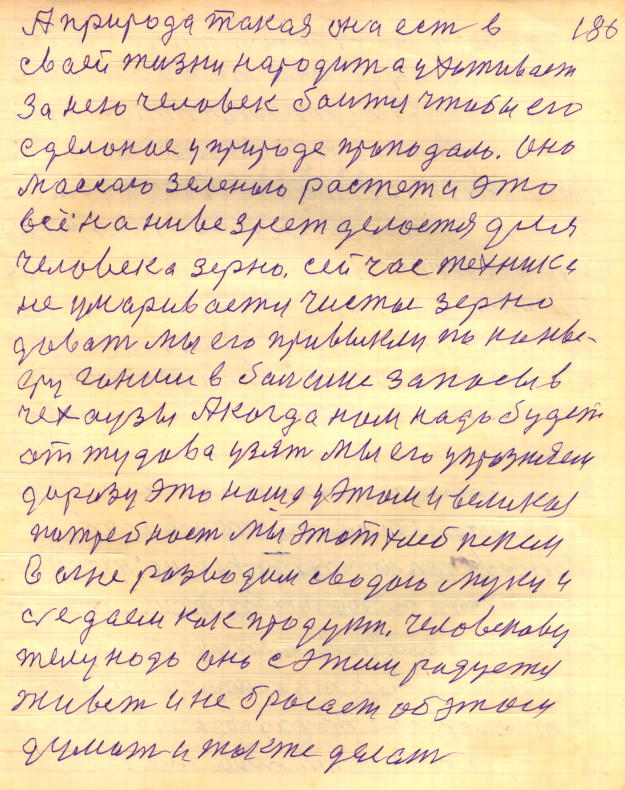 А природа такая она ест в 186
своей жизни народит а ухаживает
за нею человек боится чтобы его
сделоное у природе проподало. Оно
массаю зеленою растет и это
всё на ниве зреет делоется для
человека зерно. сейчас техника
не умаривается чистые зерно
доват мы его привыкли по конве-
еру гоним в большие запосы в
чехаузы А когда ном надо будет
от тудова узят мы его упрозняем
дорозу это ноша у этом и великая
потребност мы этот хлеб пекем
в огне розводим сводою муки и
сгедаем как продукт. Человекову
телу нодо оно с этим родуется
живет и не бросает об этом
думат и так же делат